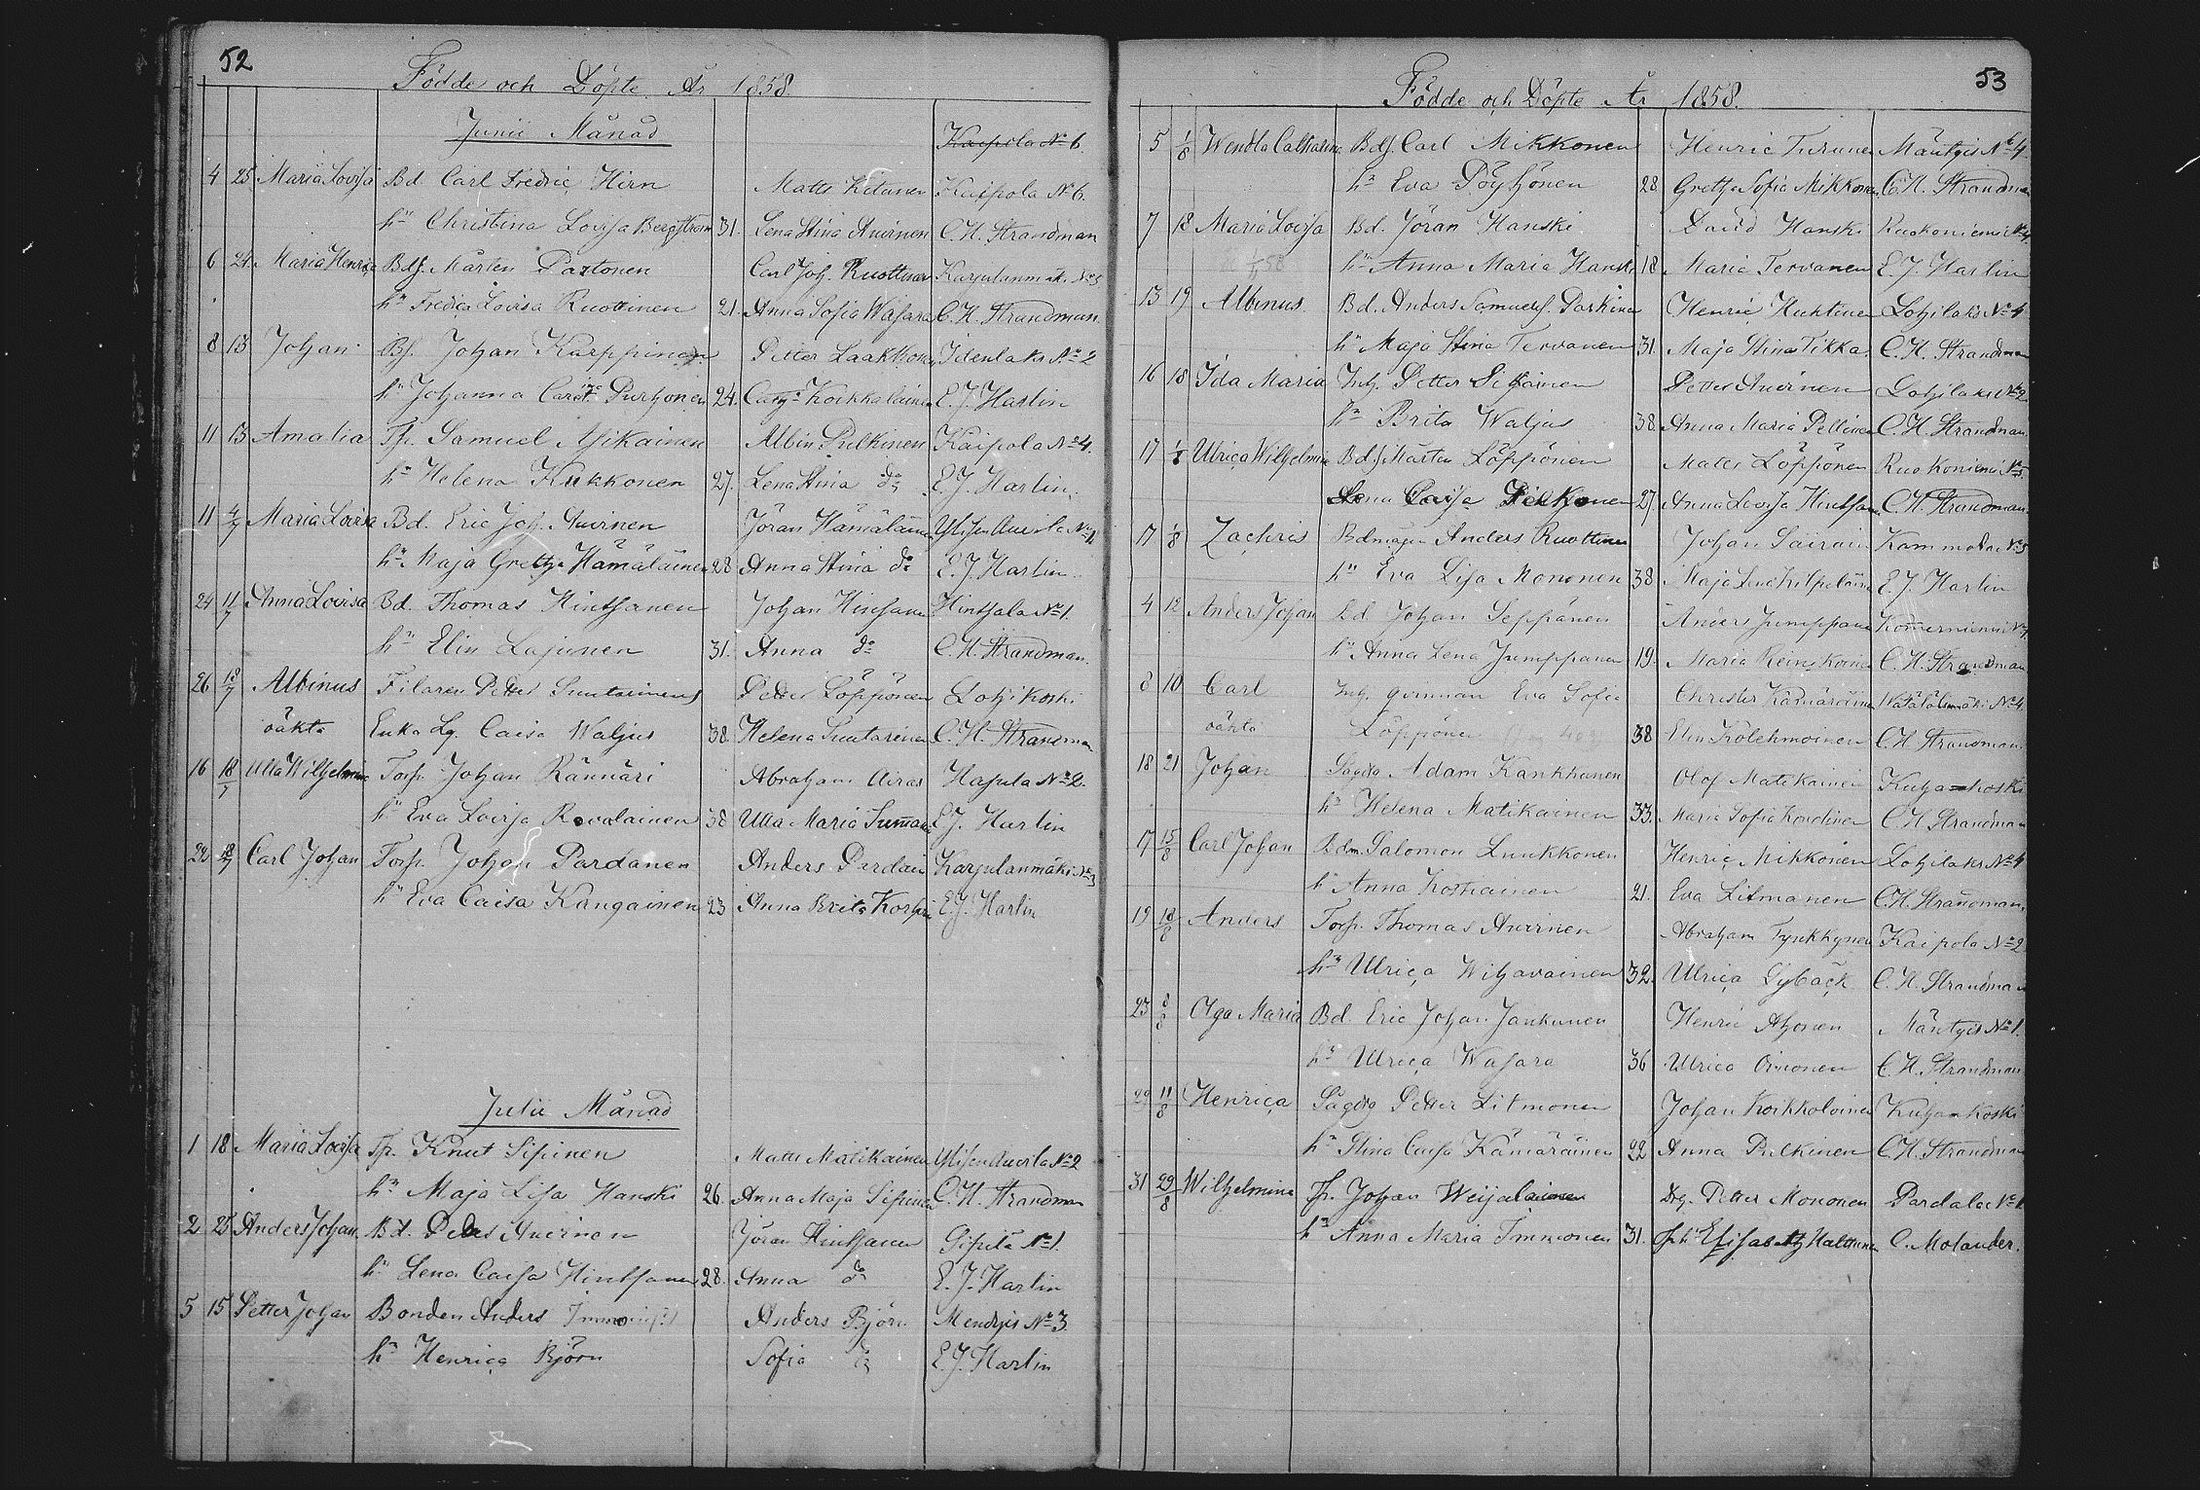 52
Födde och Döpte År 1858.
Junii Månad
Kaipola No 6.
4 25 Maria Lovisa Bd. Carl Fredric Hirn Matts Kitunen Kaipola No 6.
hu Christina Lovisa Bergström 31. Lena Stina Auvinen C. H. Strandman
6 24 Maria Henrica Bdf. Mårten Partonen Carl Joh. Ruottinen Karjulanmäk. No 3
hu Fredica Lovisa Ruottinen 21. Anna Sofia Wasara C. H. Strandman.
8 13 Johan Bf. Johan Karppinen Petter Laakkonen Idenlaks No 2
hu Johanna Carol. Purhonen 24. Koikkalainen E. J. Harlin
11 13 Amalia Tp. Samuel Asikainen Albin Pulkinen Kaipola No 4.
hu Helena Kukkonen 27. Lena Stina do E. J. Harlin.
11 4/7 Maria Lovisa Bd. Eric Joh. Auvinen Jöran Hämäläinen Ylisen Auvila No 1
hu Maja Gretha Hämäläinen 28 Anna Stina do E. J. Harlin
24 11/7 Anna Lovisa Bd. Thomas Hintsanen Johan Hintsanen Hintsala No 1.
hu Elin Lajunen 31. Anna do C. H. Strandman.
26 18/7 Albinus Filaren Petter Suutarinens Petter Löppönen Lohikoski
oäkta Enka Lg. Caisa Waljus 38. Helena Suutarinen C. H. Strandman
16 18/7 Ulla Wilhelmina Torp. Johan Rännäri Abraham Airas Hapula No 2.
hu Eva Lovisa Rovolainen 38 Ulla Maria E. J. Harlin
22 18/7 Carl Johan Torp. Johan Pardanen Anders Pardain Karjulanmäki No 3
hu Eva Caisa Kangainen 23 Anna Brita E. J. Harlin
Julii Månad
1 18 Maria Lovisa Tp. Knut Sipinen Matts Matikainen Ylisen Auvila No 2
hu Maja Lisa Hanski 26. Anna Maja Sipinen C. H. Strandman
2 25 Anders Johan Bd. Petter Auvinen Jöran Hintsanen No 1.
hu Lena Caisa Hintsanen 28. Anna do E. J. Harlin
5 15 Petter Johan Bonden Anders Petter Anders Björn No 3.
hu Henrica Björn Sofia do E. J. Harlin
53
Födde och Döpte År 1858.
5 1/8 Wendla Catharina Bdf. Carl Mikkonen Henric Turunen Mäntyis No 4
hu Eva Pöyhönen 28. Gretha Sofia Mikkonen C. H. Strandman
7 18 Maria Lovisa Bd. Jöran Hanski David Hanski Ruokoniemi No 4
hu Anna Maria Hanski 18. Maria Tervanen E. J. Harlin
13 19 Albinus. Bd. Anders Samuelsf. Parkinen Henric Huktinen Lohilaks No 4
hu Maja Stina Tervanen 31. Maja Stina Tikka C. H. Strandman
16 18 Ida Maria Inh. Petter Sihvinen Petter Auvinen Lohilaks No 2
hu Brita Waljus 38. Anna Maria Pellinen C. H. Strandman.
17 1/8 Ulrica Wilhelmina Bdf. Mårten Löppönen Matts Löppönen Ruokoniemi No 3
Lena Caisa Pelkonen 27. Anna Lovisa Hintsanen C. H. Strandman.
17 1/8 Zachris Bdmågen Anders Ruottinen Johan Sairain Kammola No 5
hu Eva Lisa Mononen 38 Maja Lena E. J. Harlin
4 12 Anders Johan Ld. Johan Seppänen Anders Jumppanen Kommerniemi
hu Anna Lena Jumppanen 19. Maria Reinikainen C. H. Strandman
8 10 Carl Inh. qvinnan Eva Sofia Christer Kämäräinen Wätälänmäki No 4
oäkta Löppönen 38 Elin Kolehmainen C. H. Strandman.
18 21 Johan Sågdg Adam Kankkunen Olof Matikainen Kuhakoski
hu Helena Matikainen 33. Maria Sofia Kondinen C. H. Strandman
17 15/8 Carl Johan Bdm. Salomon Luukkonen Henric Mikkonen Lohilaks No 4
hu Anna Kostiainen 21. Eva Litmanen C. H. Strandman.
19 18/8 Anders Torp. Thomas Auvinen Abraham Tynkkynen Kaipola No 2
hu Ulrica Wihavainen 32. Ulrica Gyback C. H. Strandman
23 8/8 Olga Maria Bd. Eric Johan Jankunen Henric Ahonen Mäntyis No 1.
hu Ulrica Wasara 36 Ulrica Oinonen C. H. Strandman
29 11/8 Henrica Sågdg Petter Litmonen Johan Koikkalainen Kuhankoski
hu Stina Caisa Kämäräinen 22 Anna Pulkinen C. H. Strandman
31 29/8 Wilhelmina Tp. Johan Weijalainen Drg. Petter Mononen Pardala No 1.
hu Anna Maria Immonen 31. Elisabeth Halttunen C. Molander.